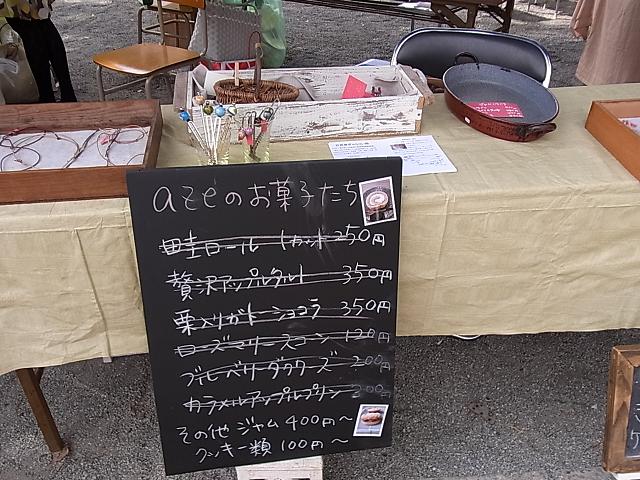 azeのお菓子たち
畦ロール 1カット 250円
贅沢アップルタルト 350円
栗入りガトーショコラ 350円
ローズマリースコーン 120円
ブルーベリーダクワーズ 200円
カラメルアップルプリン 200円
その他 ジャム 400円〜
クッキー類 100円〜